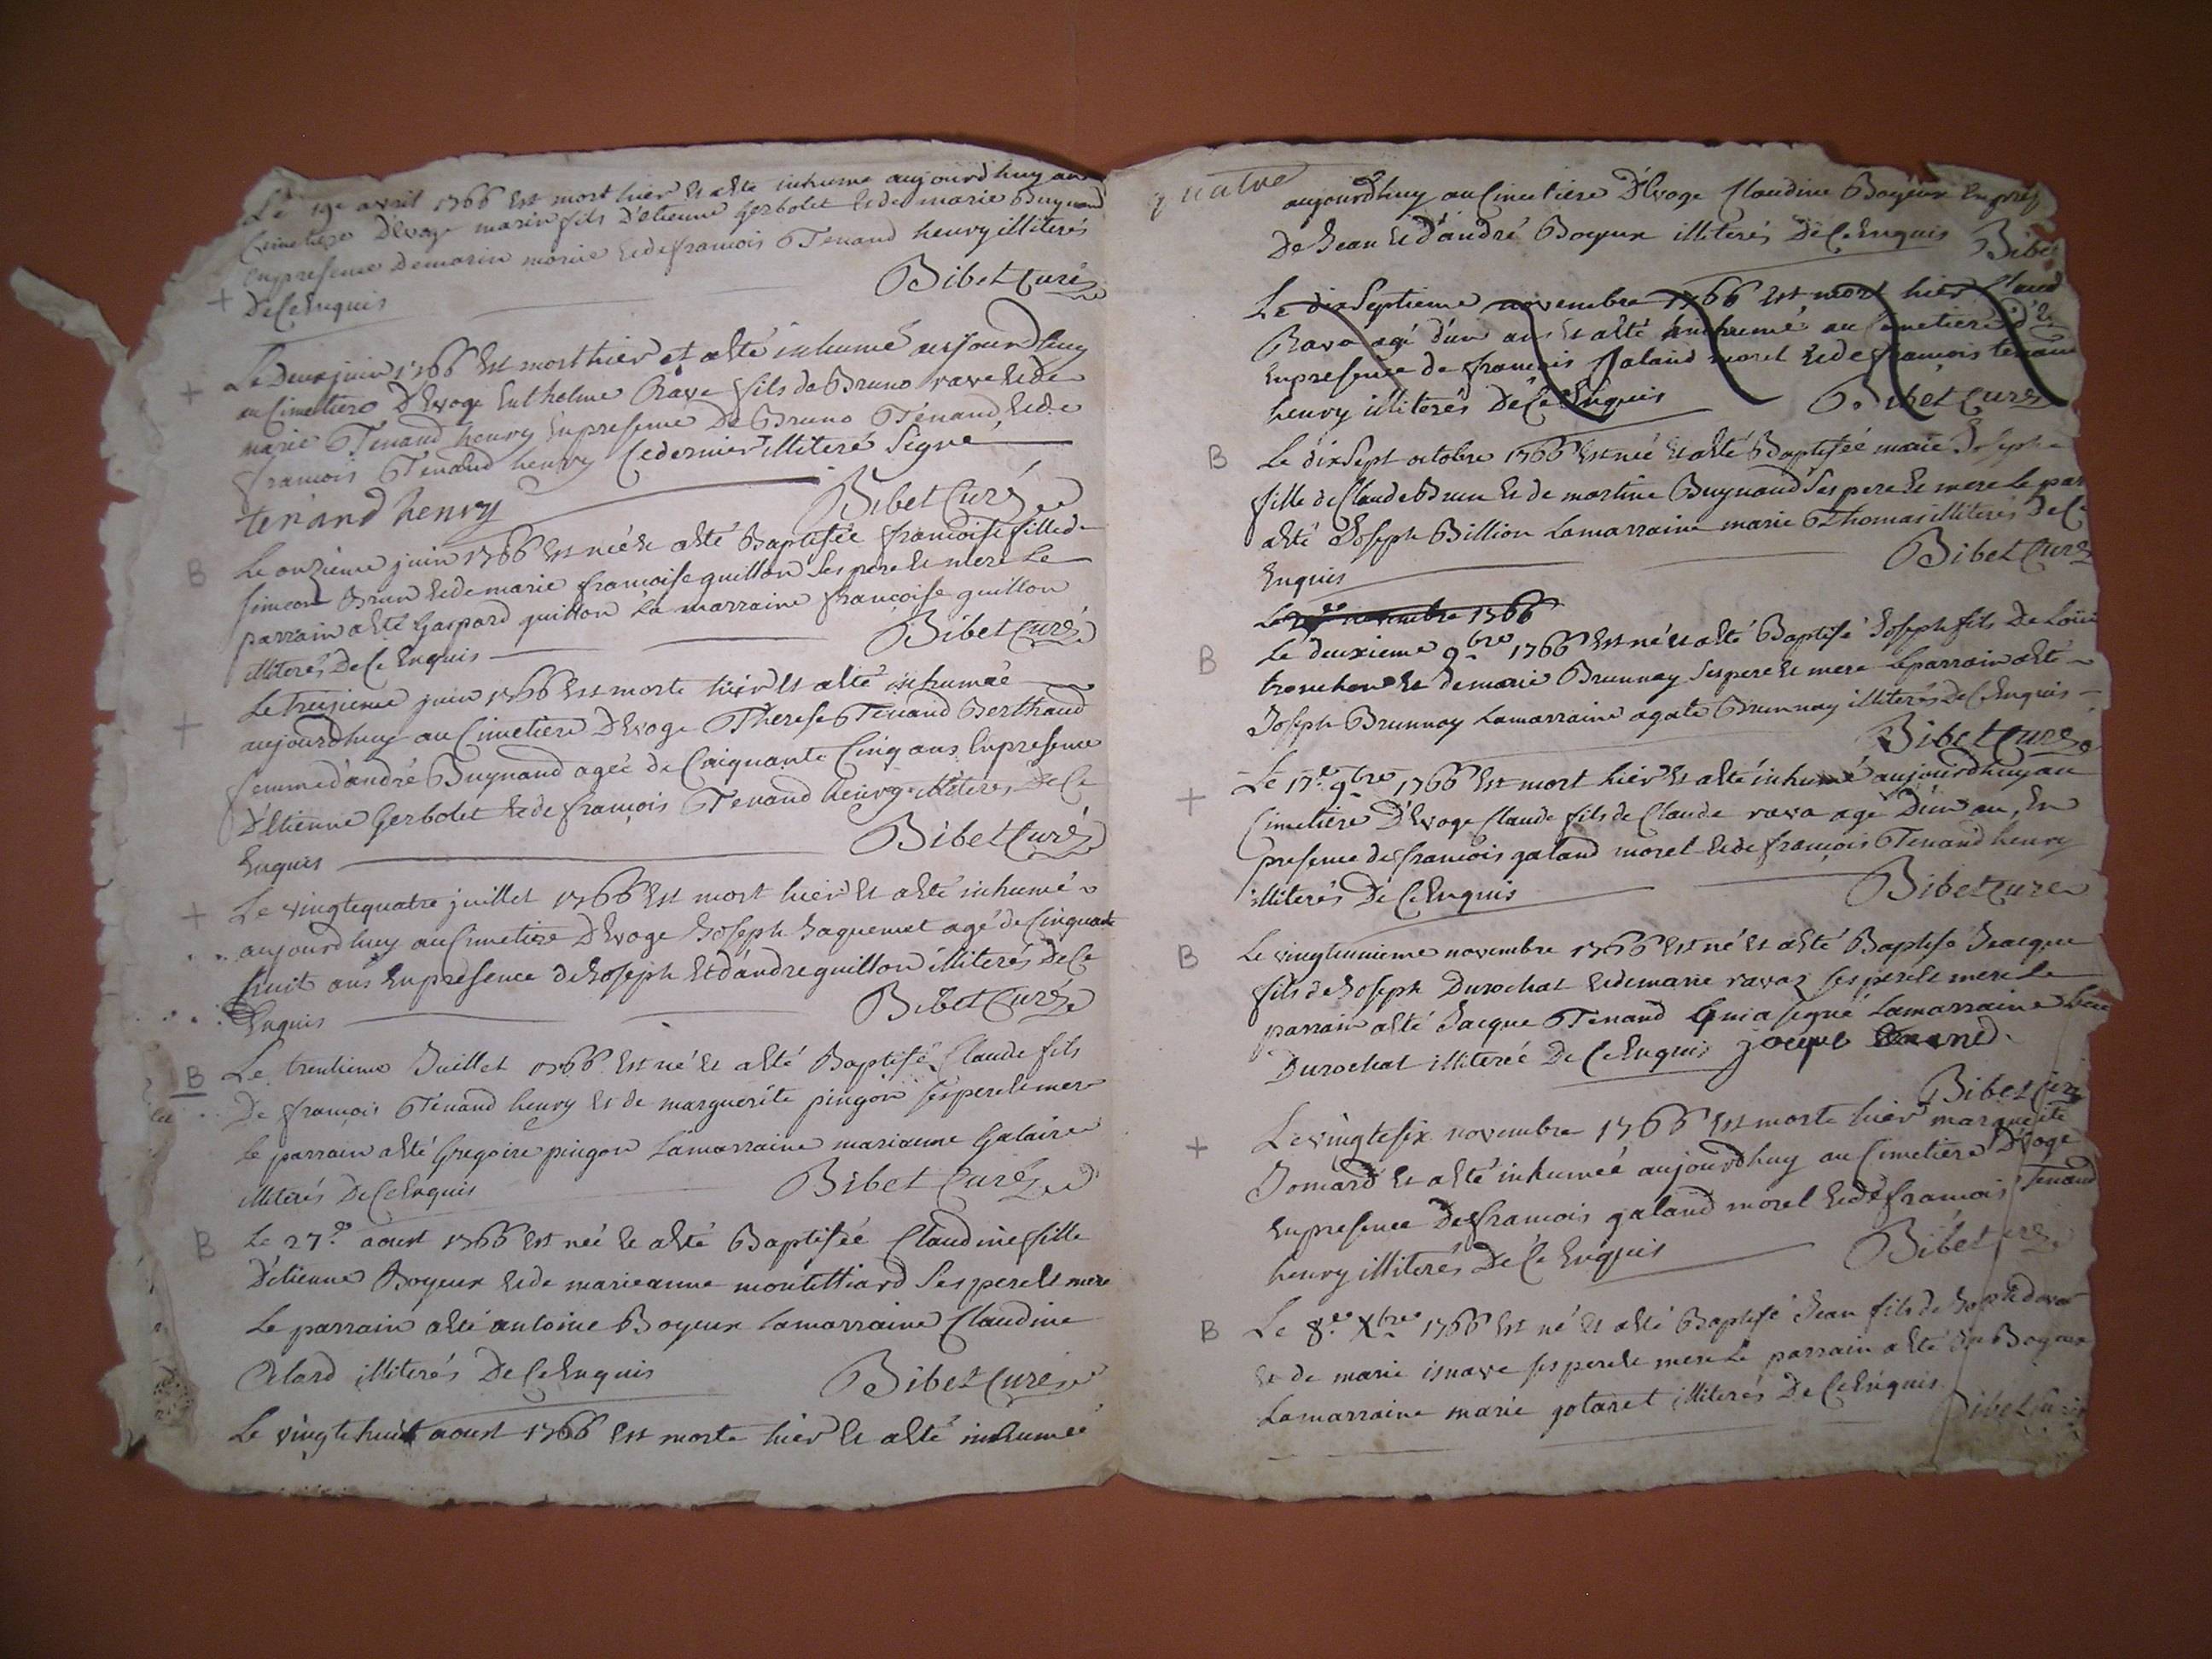 Le 19e avril 1766 est mort hier et a eté inhumé aujourdhuy au
Cimetiere D'Evoge marin fils D'étienne Gerbolet et de marie Buynand
en presence De marin et de francois Tenand henry illiterés
+ De Ce Enquis Bibet Curé
+ Le Deux juin 1766 est mort hier et a eté inhumé aujourdhuy
au Cimetiere D'Evoge Entholme Rave fils de Bruno rave et de
marie Tenand henry en presence De Bruno Tenand et de
francois Tenand henry Ce dernier illiteré Signé
tenand henry Bibet Curé
B Le onzieme juin 1766 est neé et a eté Baptisée francoise fille de
simeon Brun et de marie francoise guillon Ses pere et mere Le
parrain a eté Gaspard guillon La marraine françoise guillon
illiterés De Ce Enquis Bibet Curé
+ Le treizieme juin 1766 est morte hier et a eté inhumée
aujourdhuy au Cimetiere D'Evoge Therese Tenand Berthaud
femme d'andré Buynand ageé de Cinquante Cinq ans En presence
D'Etienne Gerbolet et de francois Tenand henry illiterés De Ce
Enquis Bibet Curé
+ Le vingt e quatre juillet 1766 est mort hier et a eté inhumé
aujourdhuy au Cimetiere D'Evoge Joseph Jaquemet agé de Cinquante
huit ans En presence de Joseph et d'andre guillon illiterés De Ce
Enquis Bibet Curé
B Le trentieme Juillet 1766 est né et a eté Baptisé Claude fils
De francois Tenand henry et de marguerite pingon ses pere et mere
le parrain a eté Gregoire pingon La marraine marianne Galaire
illiterés De Ce Enquis Bibet Curé
B Le 27e aoust 1766 est neé et a eté Baptiseé Claudine fille
D'étienne Boyeux et de marieanne montilliard Ses pere et mere
Le parrain a eté antoine Boyeux La marraine Claudine
illiterés De Ce Enquis Bibet Curé
Le vingt e huit aoust 1766 est morte hier et a eté inhumeé
quatre
aujourdhuy au Cimetiere D'Evoge Claudine Boyeux En presence
De Jean et d'andré Boyeux illiterés De Ce Enquis Bibet
Le dix Septieme novembre 1766 est mort hier Claud
Rava agé d'un an et a eté inhumé au Cimetiere d'E
En presence de francois Galand morel et de francois tenand
henry illiterés De Ce Enquis Bibet Curé
B Le dix Sept octobre 1766 est neé et a eté Baptiseé marie Joseph
fille de Claude Brun et de martine Buynand Ses pere et mere Le par
a eté Joseph Billion La marraine marie Thomas illiterés De Ce
Enquis Bibet Curé
Le novembre 1766
B Le deuxieme 9bre 1766 est né et a eté Baptisé Joseph fils De Loüis
tronchon et de marie Brunnay Ses pere et mere Le parrain a eté
Joseph Brunnay La marraine agate Brunnay illiterés De Ce Enquis
Bibet Curé
+ Le 17e 9bre 1766 est mort hier et a eté inhumé aujourdhuy au
Cimetiere D'Evoge Claude fils de Claude rava agé D'un an, En
presence de francois galand morel et de françois Tenand henry
illiterés De Ce Enquis Bibet Curé
B Le vingt unieme novembre 1766 est né et a eté Baptisé Jacque
fils de Joseph Durochat et de marie ravaz ses pere et mere Le
parrain a eté Jacque Tenand Qui a signé La marraine
Durochat illitereé De Ce Enquis jacque tenand.
Bibet Curé
+ Le vingt e six novembre 1766 est morte hier marguerite
Jomard et a eté inhumeé aujourdhuy au Cimetiere D'Evoge
En presence De francois galand morel et de francois Tenand
henry illiterés De Ce Enquis Bibet Curé
B Le 8e Xbre 1766 est né et a eté Baptisé Jean fils de
et de marie ses pere et mere Le parrain a eté Boyeux
La marraine marie gotaret illiterés De Ce Enquis
Bibet Curé